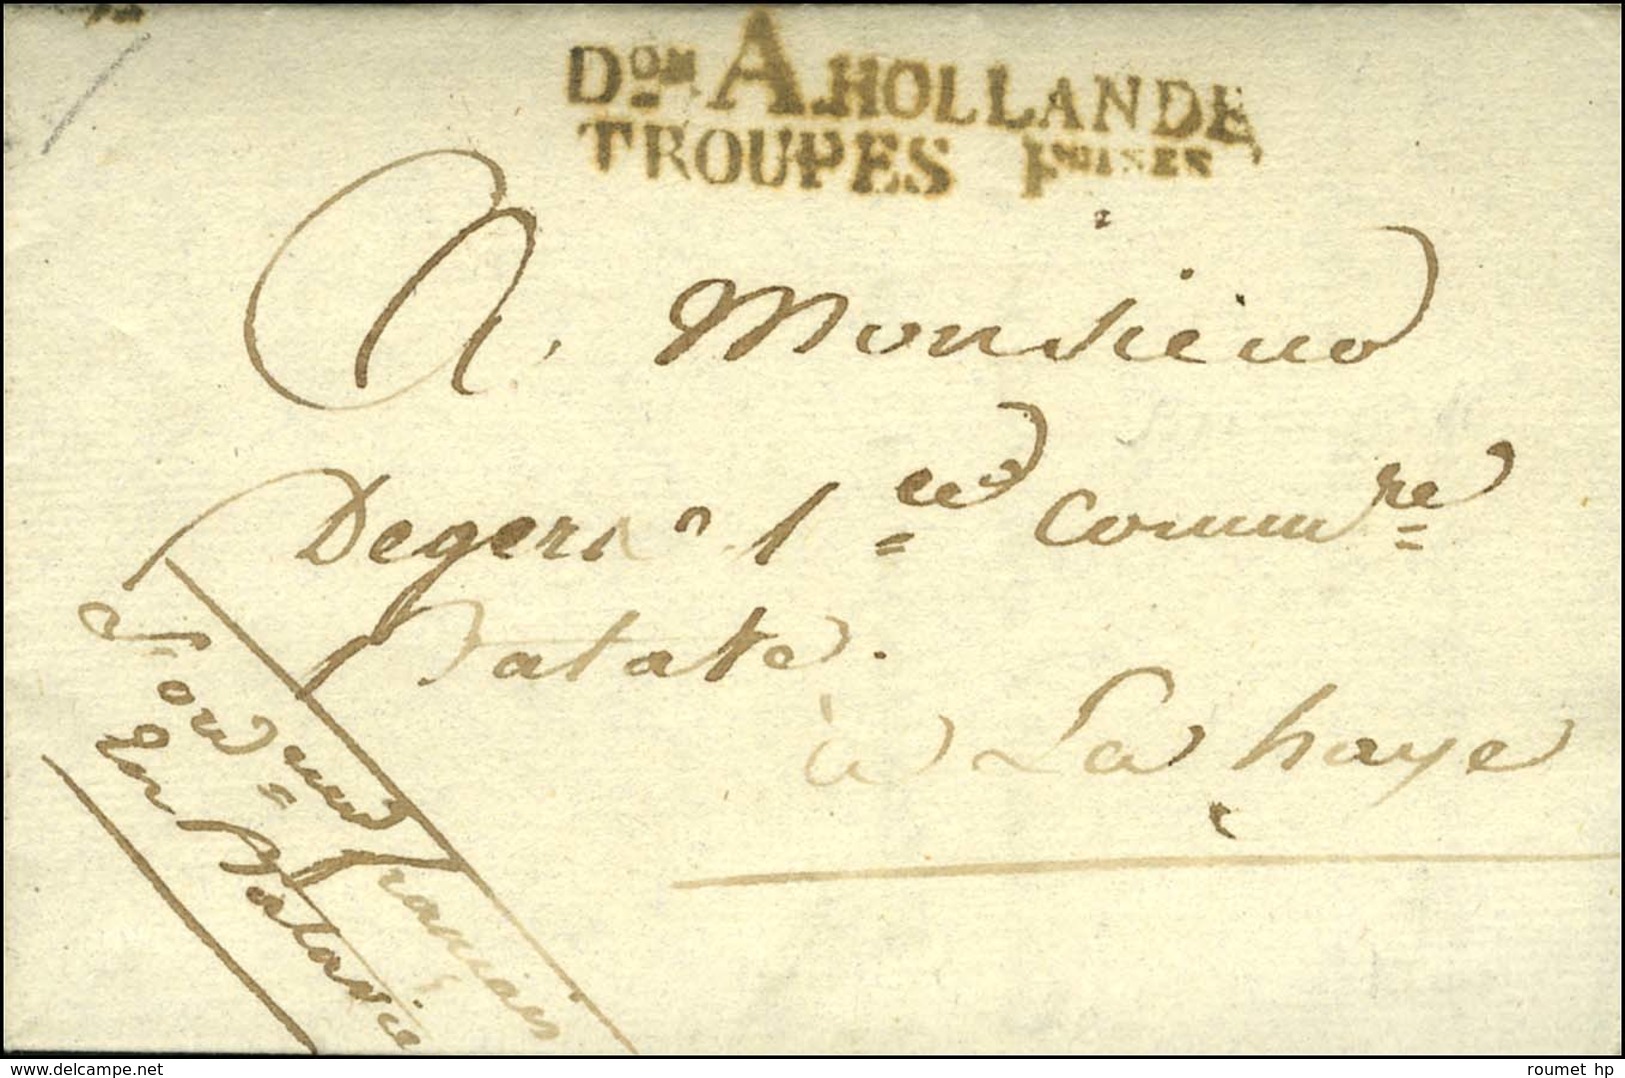 Don A HOLLANDE
TROUPES Fçaises
A. Monsieur
Degers 1er Commre
Batave.
à La haye
L'ordeur français
En Batavie
delcampe.net
roumet hp